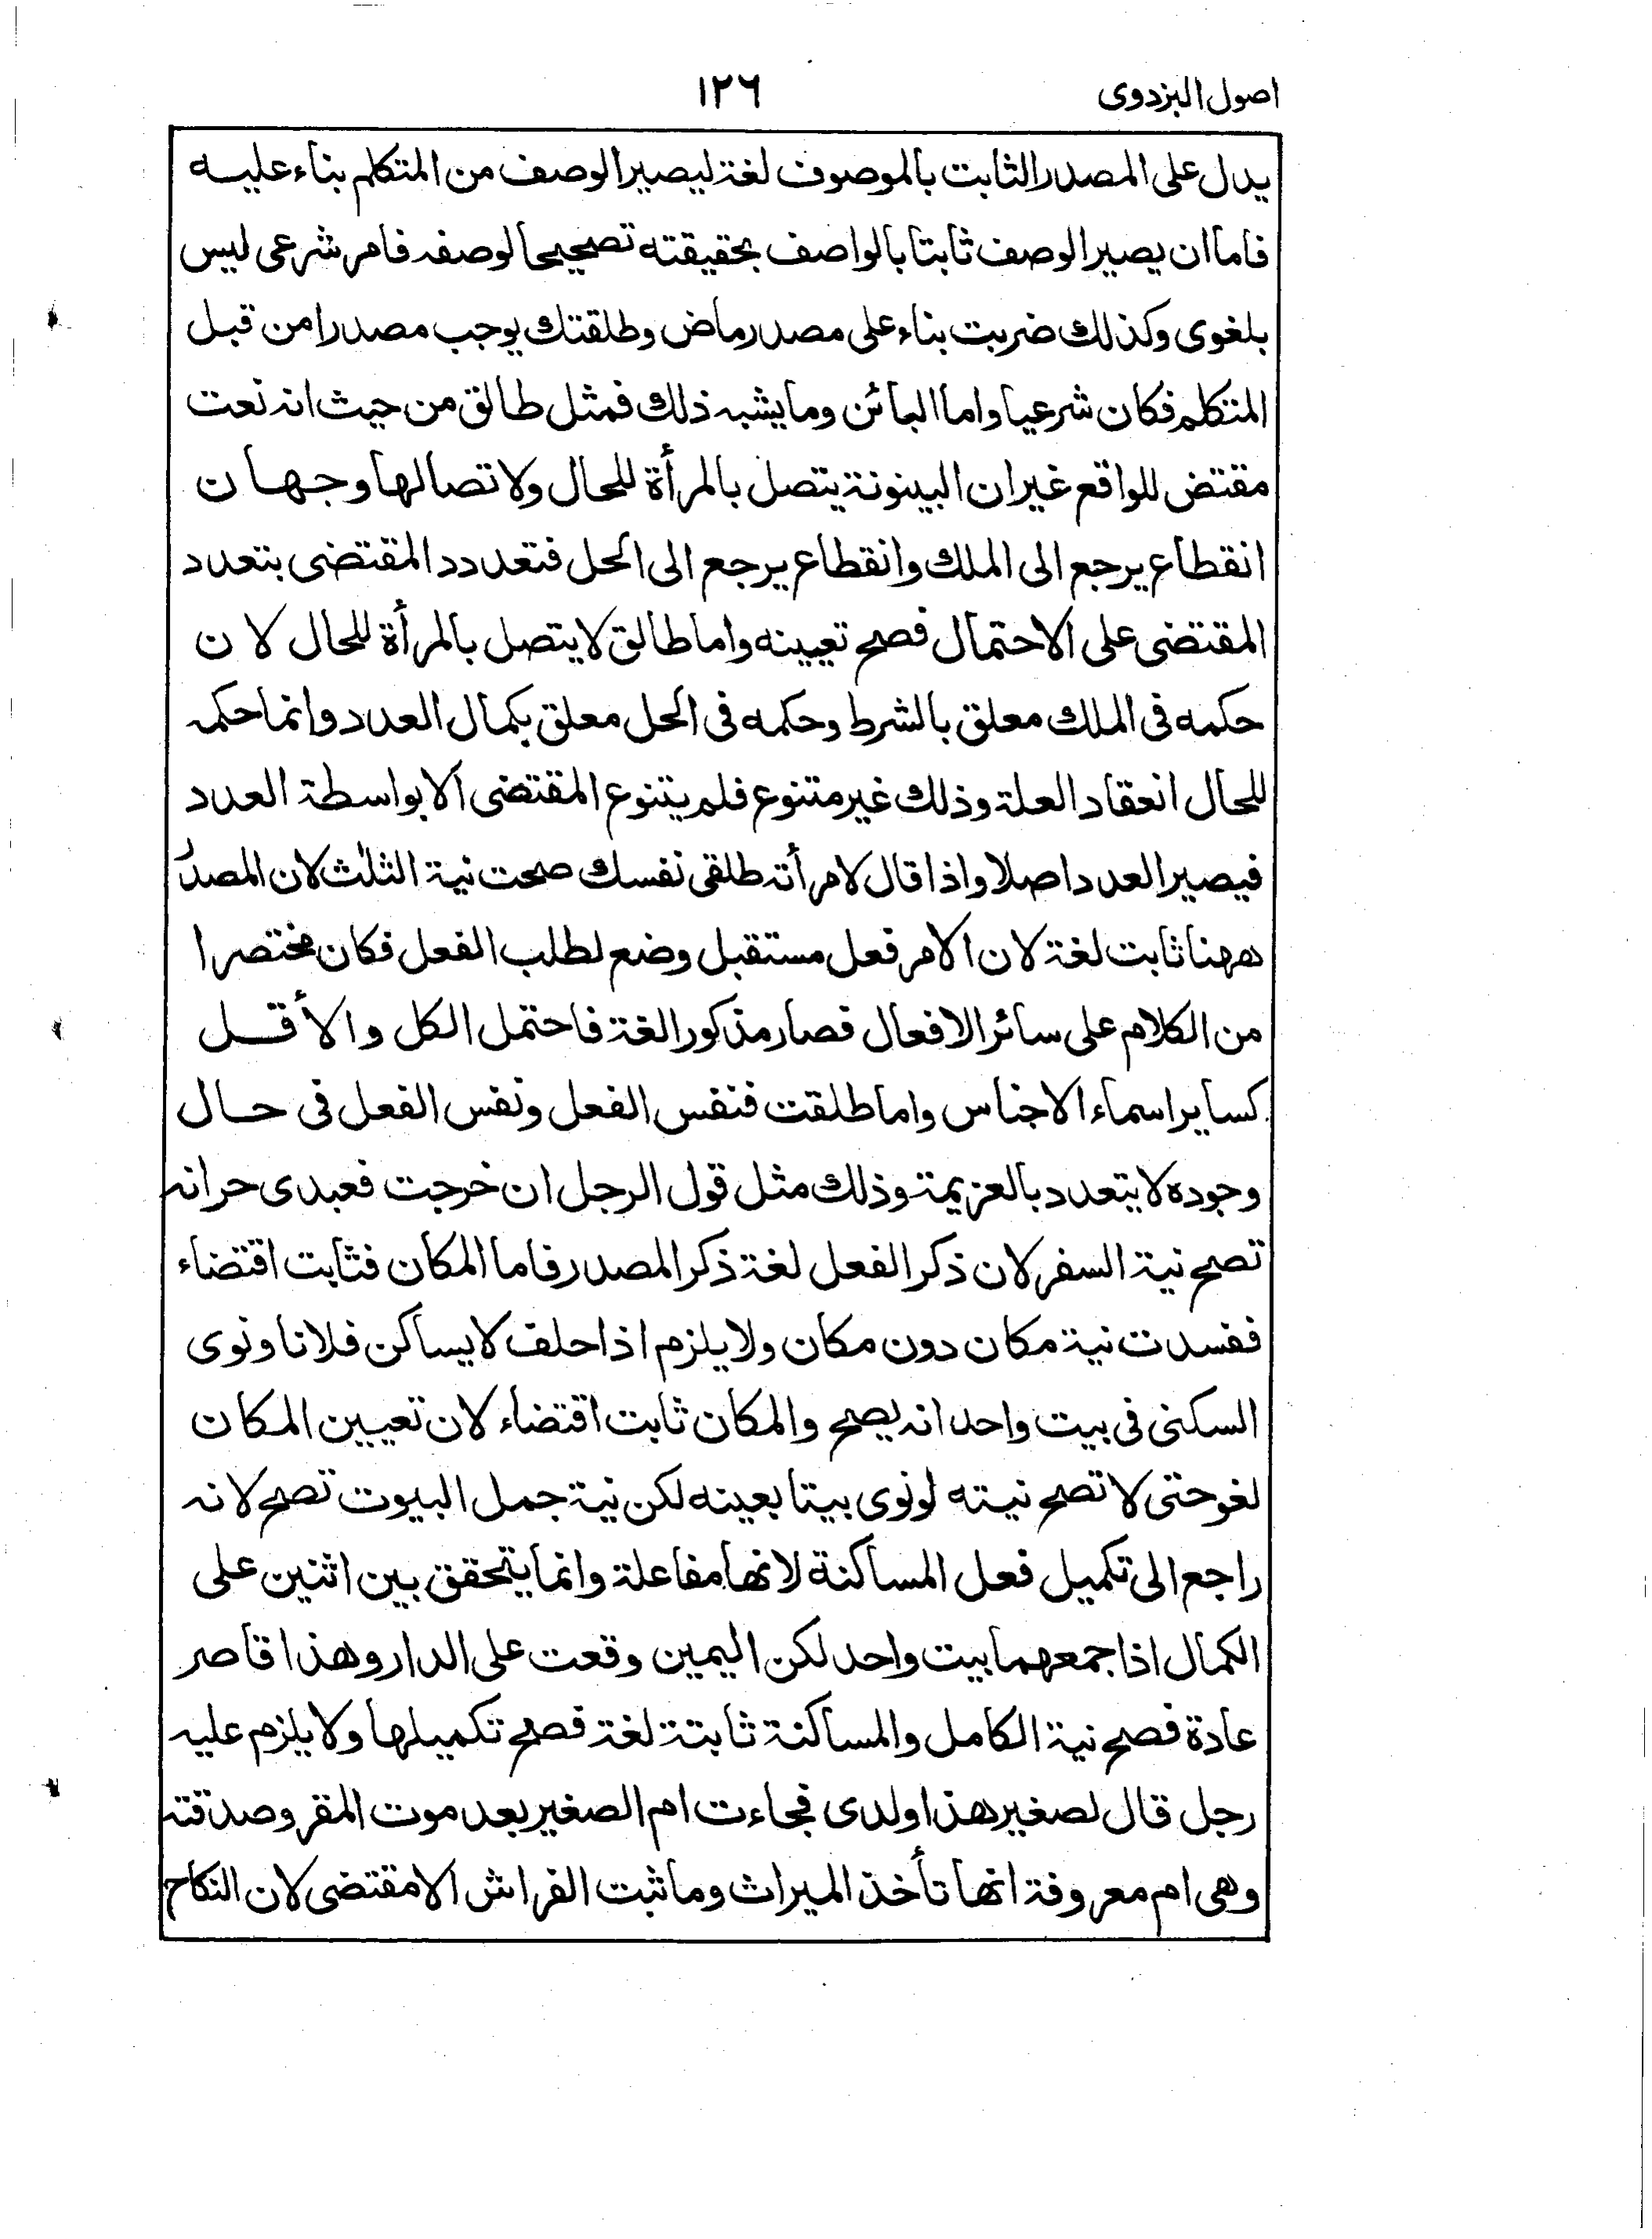 اصول البزدوى
۱۲۶
يدل على المصدر الثابت بالموصوف لغة ليصير الوصف من المتكلم بناء عليه
فاما ان يصير الوصف ثابتا بالواصف بحقيقته تصحيحا لوصفه فامر شرعى ليس
بلغوى وكذلك ضربت بناء على مصدر ماض وطلقتك يوجب مصدرا من قبل
المتكلم فكان شرعيا واما البائن وما يشبه ذلك فمثل طالق من حيث انه نعت
مقتض للواقع غير ان البينونة يتصل بالمرأة للحال ولا تصالها وجهان
انقطاع يرجع الى الملك وانقطاع يرجع الى الحل فتعدد المقتضى بتعدد
المقتضى على الاحتمال فصح تعيينه واما طالق لا يتصل بالمرأة للحال لان
حكمه فى الملك معلق بالشرط وحكمه فى الحل معلق بكمال العدد وانما حكمه
للحال انعقاد العلة وذلك غير متنوع فلم يتنوع المقتضى الا بواسطة العدد
فيصير العدد اصلا واذا قال لامرأته طلقى نفسك صحت نية الثلث لان المصدر
ههنا ثابت لغة لان الامر فعل مستقبل وضع لطلب الفعل فكان مختصرا
من الكلام على سائر الافعال فصار مذكورا لغة فاحتمل الكل والأقل
كساير اسماء الاجناس واما طلقت فنفس الفعل ونفس الفعل فى حال
وجوده لا يتعدد بالعزيمة وذلك مثل قول الرجل ان خرجت فعبدى حر انه
تصح نية السفر لان ذكر الفعل لغة ذكر المصدر فاما المكان فثابت اقتضاء
ففسدت نية مكان دون مكان ولا يلزم اذا حلف لا يساكن فلانا ونوى
السكنى فى بيت واحد انه يصح والمكان ثابت اقتضاء لان تعيين المكان
لغو حتى لا تصح نيته لو نوى بيتا بعينه لكن نية جمل البيوت تصح لانه
راجع الى تكميل فعل المساكنة لانها مفاعلة وانما يتحقق بين اثنين على
الكمال اذا جمعهما بيت واحد لكن اليمين وقعت على الدار وهذا قاصر
عادة فصح نية الكامل والمساكنة ثابتة لغة فصح تكميلها ولا يلزم عليه
رجل قال لصغير هذا ولدى فجاءت ام الصغير بعد موت المقر وصدقته
وهى ام معروفة انها تأخذ الميراث وما ثبت الفراش الا مقتضى لان النكاح